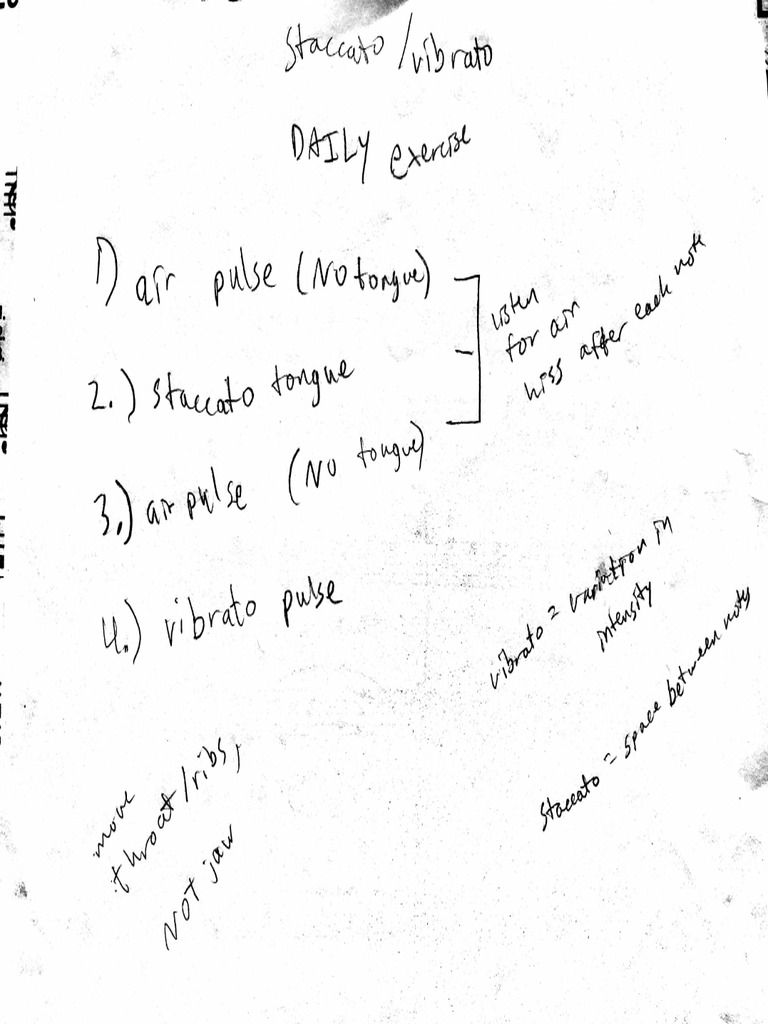 staccato / vibrato
DAILY exercise
1) air pulse (No tongue)
2.) staccato tongue
3.) air pulse (NO tongue)
4.) vibrato pulse
Listen
for air
hiss after each note
vibrato = variation in
intensity
staccato = space between notes
move
throat/ribs,
NOT jaw